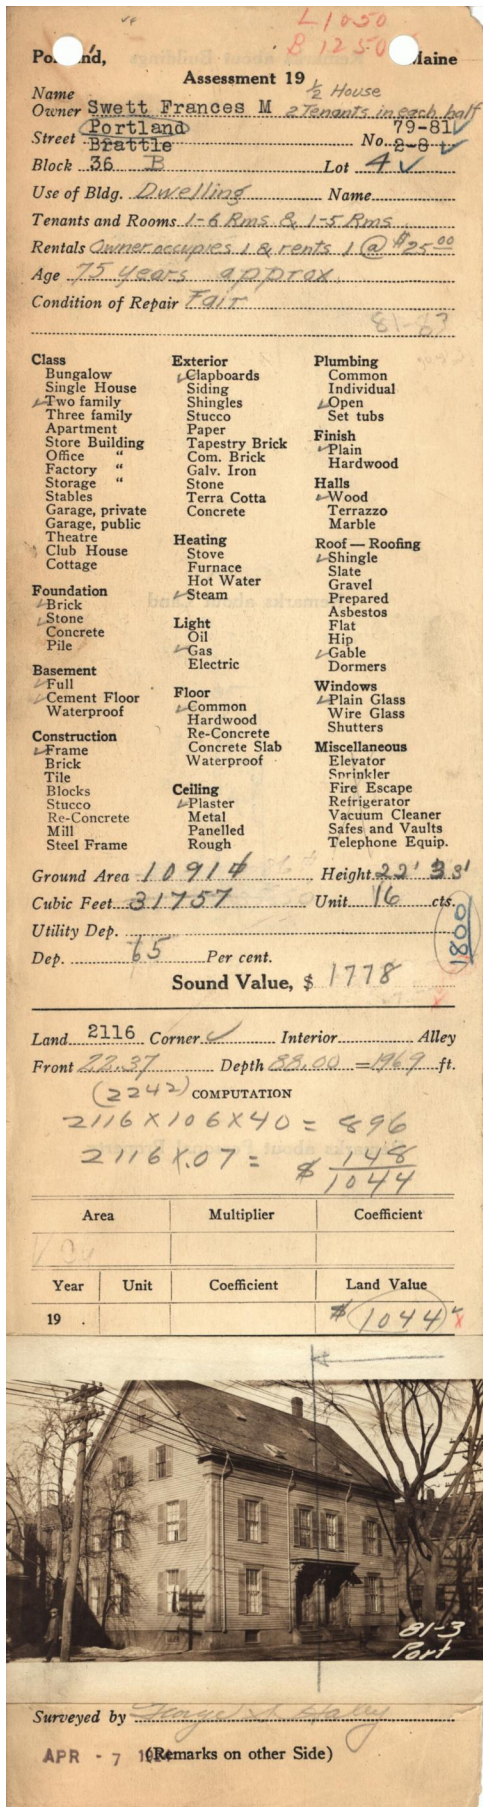 L 1050
B 1250
Maine
Assessment 19
Name 1/2 House
Owner Swett Frances M 2 Tenants in each half
Portland 79-81
Street Brattle No. 2-8
Block 36 B Lot 4
Use of Bldg. Dwelling Name
Tenants and Rooms 1-6 Rms & 1-5 Rms
Rentals Owner occupies 1 & rents 1 @ $25.00
Age 75 years approx.
Condition of Repair Fair
Class
Bungalow
Single House
✓Two family
Three family
Apartment
Store Building
Office "
Factory "
Storage "
Stables
Garage, private
Garage, public
Theatre
Club House
Cottage
Foundation
✓Brick
✓Stone
Concrete
Pile
Basement
✓Full
✓Cement Floor
Waterproof
Construction
✓Frame
Brick
Tile
Blocks
Stucco
Re-Concrete
Mill
Steel Frame
Exterior
✓Clapboards
Siding
Shingles
Stucco
Paper
Tapestry Brick
Com. Brick
Galv. Iron
Stone
Terra Cotta
Concrete
Heating
Stove
Furnace
Hot Water
✓Steam
Light
Oil
✓Gas
Electric
Floor
✓Common
Hardwood
Re-Concrete
Concrete Slab
Waterproof
Ceiling
✓Plaster
Metal
Panelled
Rough
Plumbing
Common
Individual
✓Open
Set tubs
Finish
✓Plain
Hardwood
Halls
✓Wood
Terrazzo
Marble
Roof — Roofing
✓Shingle
Slate
Gravel
Prepared
Asbestos
Flat
Hip
✓Gable
Dormers
Windows
✓Plain Glass
Wire Glass
Shutters
Miscellaneous
Elevator
Sprinkler
Fire Escape
Refrigerator
Vacuum Cleaner
Safes and Vaults
Telephone Equip.
Ground Area 1091 Height 22' 33'
Cubic Feet 31757 Unit 16 cts.
Utility Dep.
1800
Dep. 65 Per cent.
Sound Value, $ 1778
Land 2116 Corner ✓ Interior Alley
Front 22.37 Depth 88.00 = 1969 ft.
(2242) COMPUTATION
2116 X 106 X 40 = 896
2116 X .07 = $ 148
1044
Area Multiplier Coefficient
Year Unit Coefficient Land Value
19 $ 1044
81-3
Port
Surveyed by
APR - 7 (Remarks on other Side)